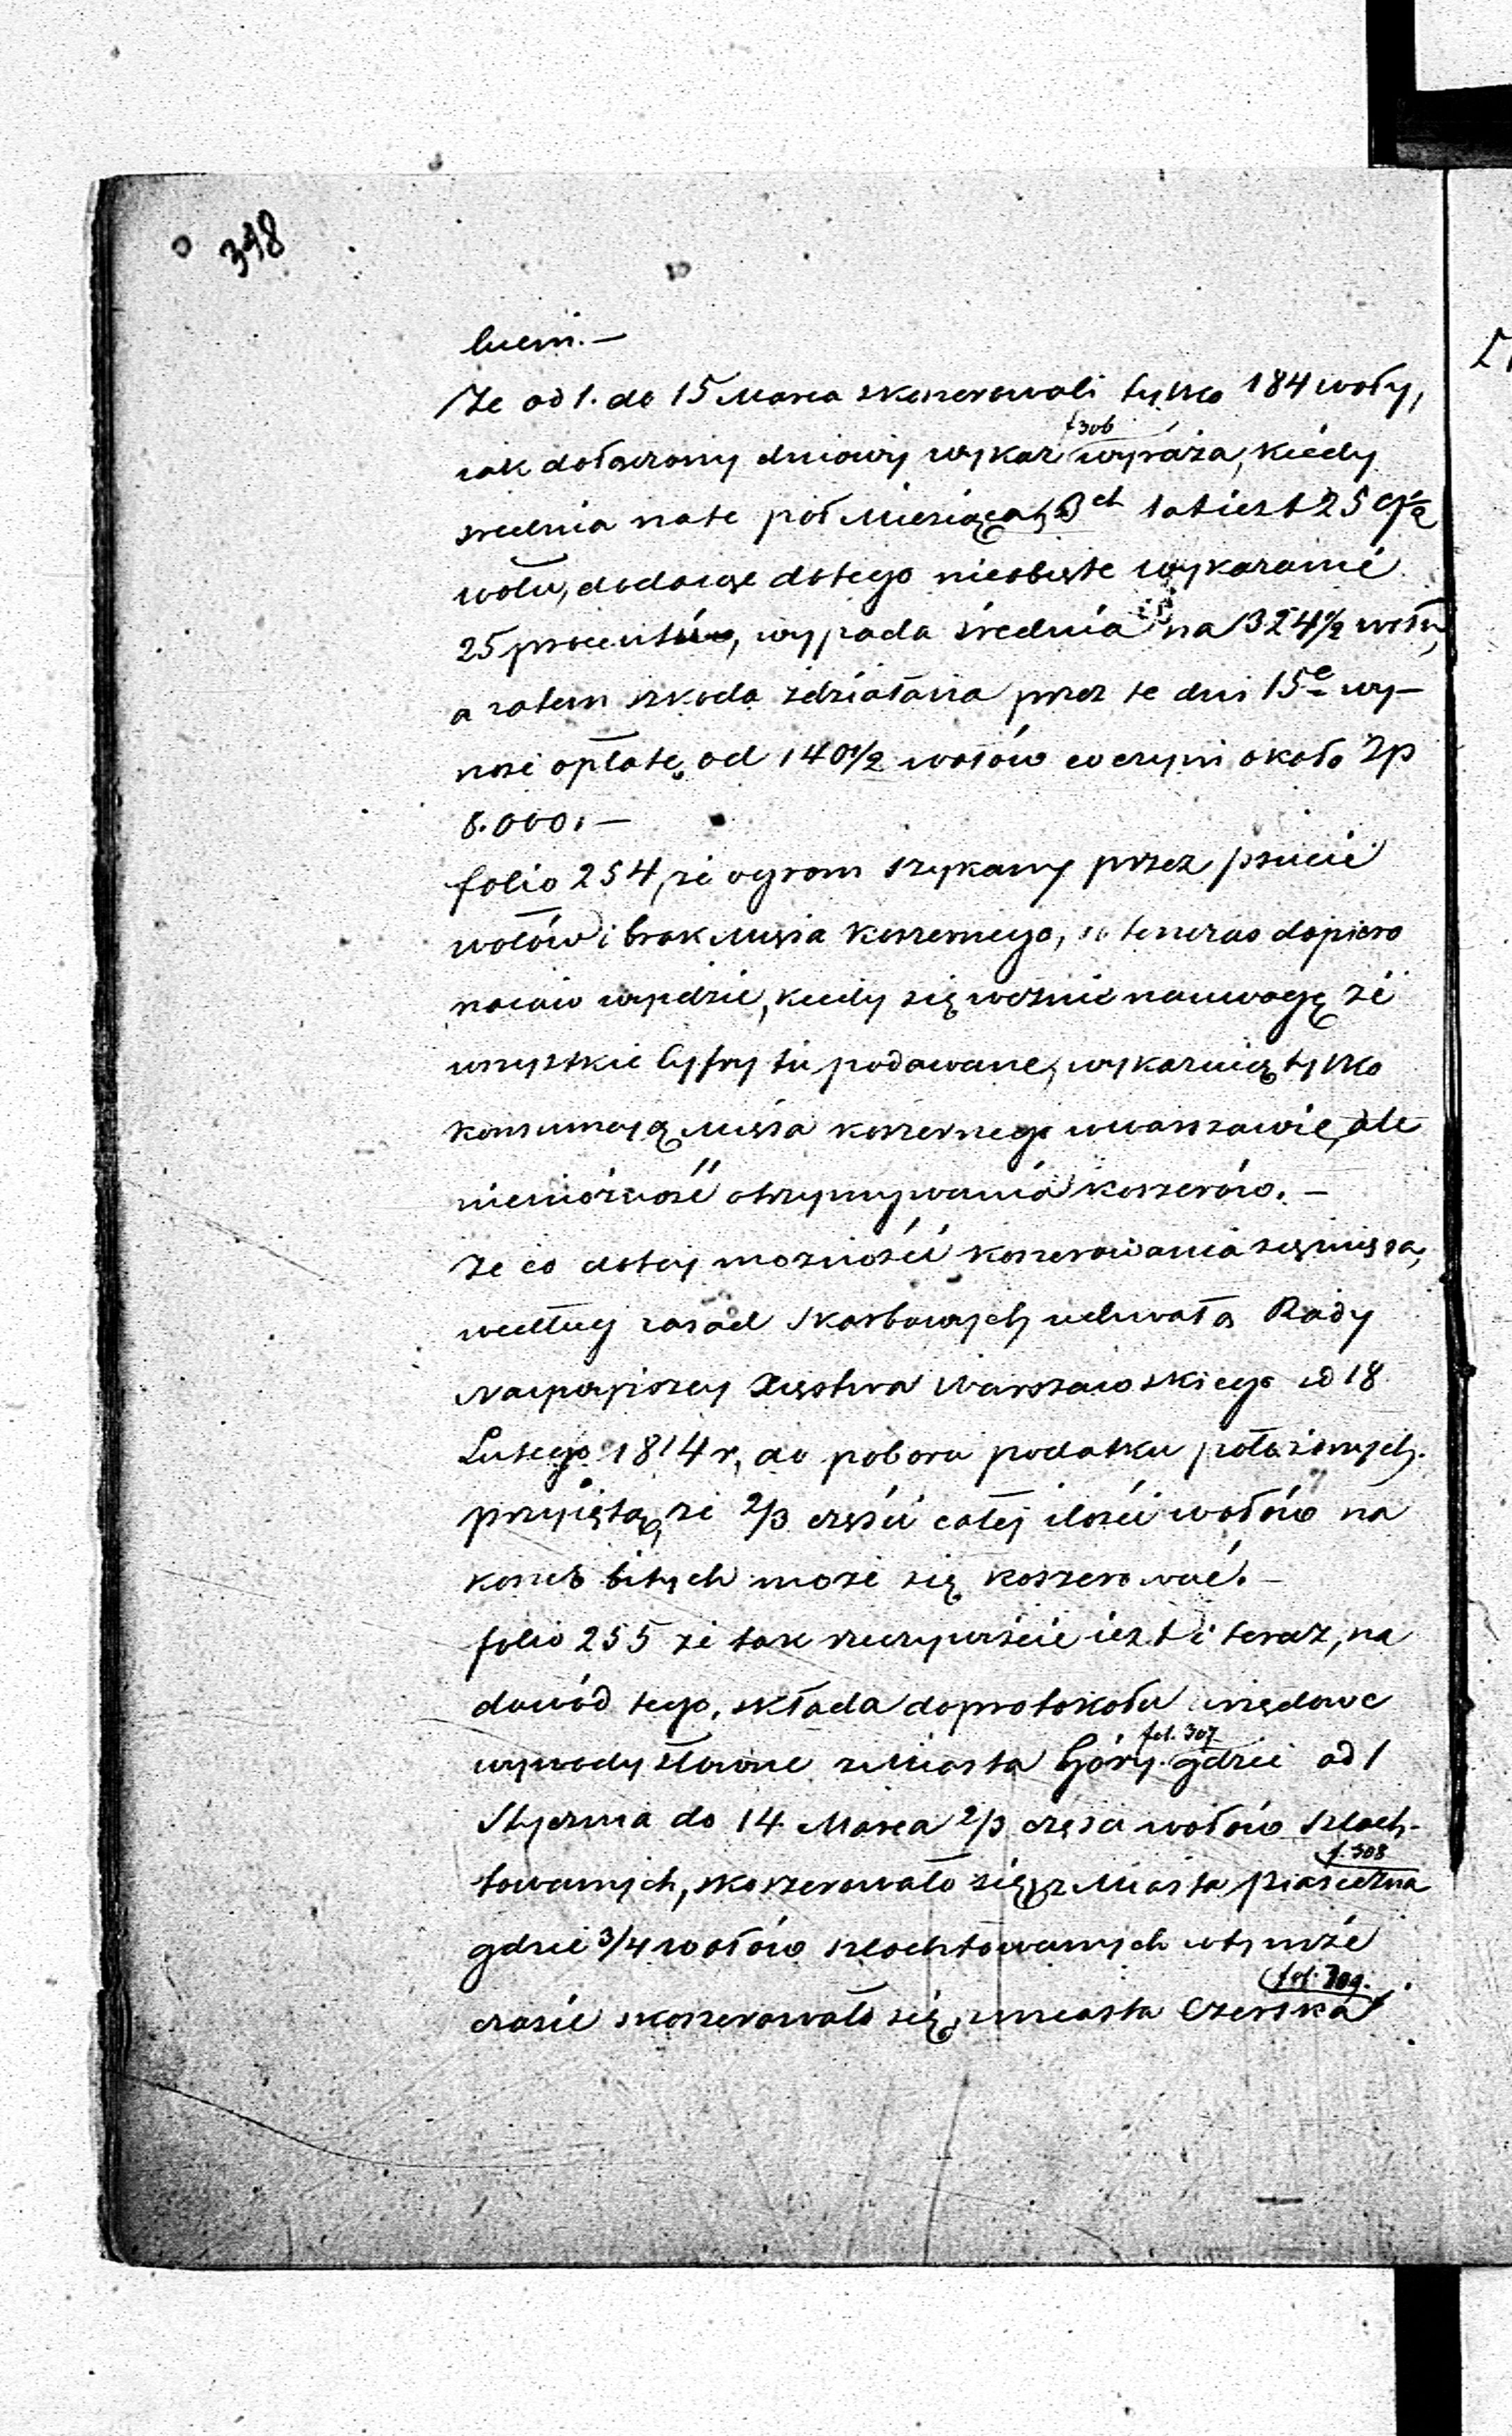 348
luem.—
Że od 1. do 15 Marca skoszerowali tylko 184 woły,
f 306
iak dołączony dniowy wykaz wyraża, kiedy
srednia na te poł Miesiąca z 3ch lat iest 259½
wołu, dodaiąc do tego nieobięte wykazami
25 procent, wypada średnia na 324½ wołu,
a zatem szkoda zdziałana przez te dni 15e wy-
nosi opłatę od 140½ wołów co czyni około Zp
8.000.—
folio 254, że ogrom szykany przez psucie
wołów i brak Mięsa koszernego, wtenczas dopiero
na iaw wydzie, kiedy się weźmie na uwagę że
wszystkie Cyfry tu podawane, wykazuią tylko
konsumcyą Mięsa koszernego w Warszawie, ale
niemożność otrzymywania koszerów.—
Że co do tey możności koszerowania się mięsa,
według zasad skarbowych uchwałą Rady
Naywyższey Xięstwa Warszawskiego d 18
Lutego 1814 r, do poboru podatku położonych.
przyięta, że 2/3 części całej ilości wołów na
koszer bitych może się koszerować.—
folio 255 że tak rzeczywiście iest i teraz, na
dowód tego, składa do protokołu urzędowe
fol. 307
wywody słowne z Miasta Góry. gdzie od 1
Stycznia do 14 Marca 2/3 części wołów szlach-
f. 308
towanych, skoszerowało się, z Miasta Piaseczna
gdzie 3/4 wołów szlachtowanych w tymże
fol. 309.
czasie skoszerowało się, z miasta Czerska